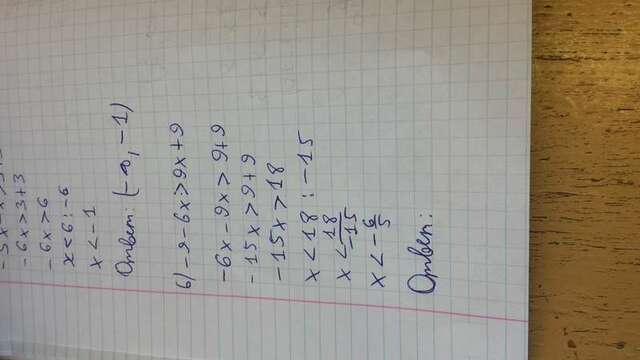 -6x>3+3
-6x>6
x<6:-6
x<-1
Ответ: (-∞, -1)
б) -9-6x>9x+9
-6x-9x>9+9
-15x>9+9
-15x>18
x<18:-15
x<18/-15
x<-6/5
Ответ: